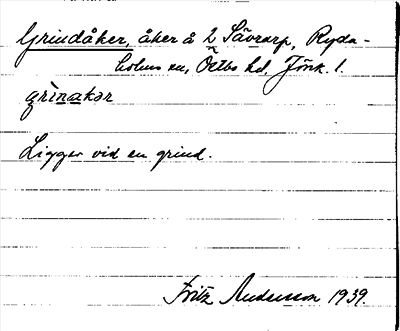 Grindåker, åker å 2 Sävrarp, Ryda-
holms sn, Östbo hd, Jönk. l.
grinakər
Ligger vid en grind.
Fritz Andersson 1939.